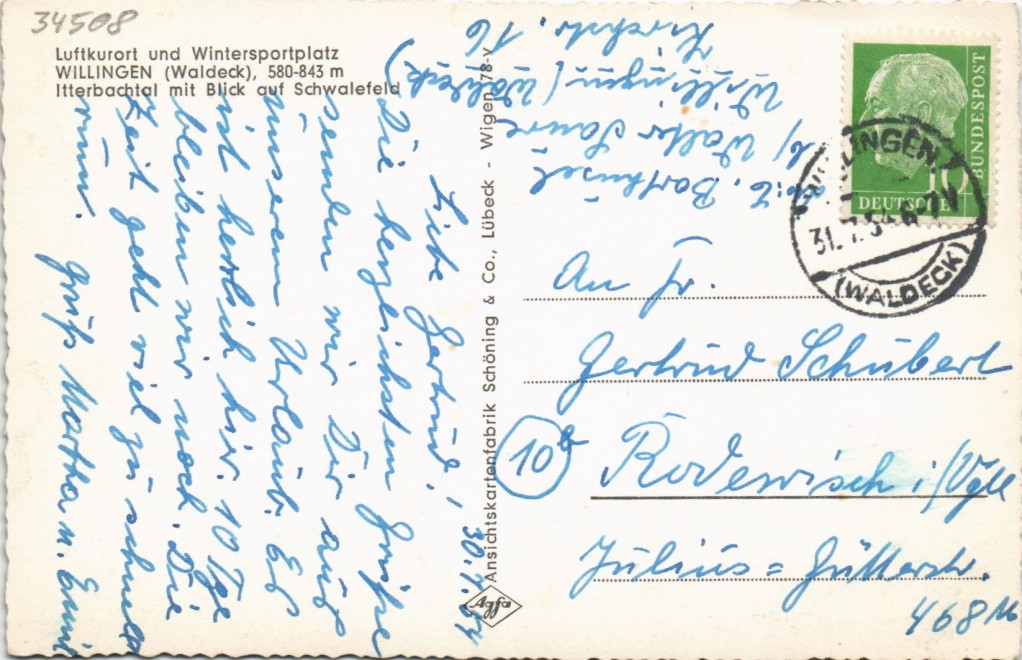 34508
Luftkurort und Wintersportplatz
WILLINGEN (Waldeck), 580-843 m
Itterbachtal mit Blick auf Schwalefeld
30.7.54
Liebe Gertrud!
Die herzlichsten Grüße
senden wir Dir aus
unserem Urlaub. Es
ist herrlich hier. 10 Tge
bleiben wir noch. Die
Zeit geht viel zu schnell
rum.
Gruß Martha u. Emil
Ansichtskartenfabrik Schöning & Co., Lübeck - Wigen 78-v
Agfa
z. Z.
b/ Walter Saure
Willingen (Waldeck)
Kirchstr. 16
DEUTSCHE
BUNDESPOST
10
WILLINGEN
31.7.54
(WALDECK)
An Fr.
Gertrud Schubert
10b
Rodewisch i/Vgtl
Julius=Gütterstr.
468